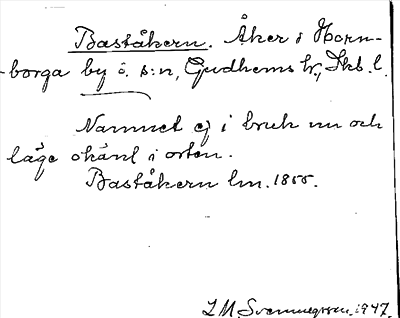 Baståkern. Åker i Horn-
borga by o. s:n, Gudhems hr, Skb. l.
Namnet ej i bruk nu och
läge okänt i orten.
Baståkern lm. 1855.
1947.